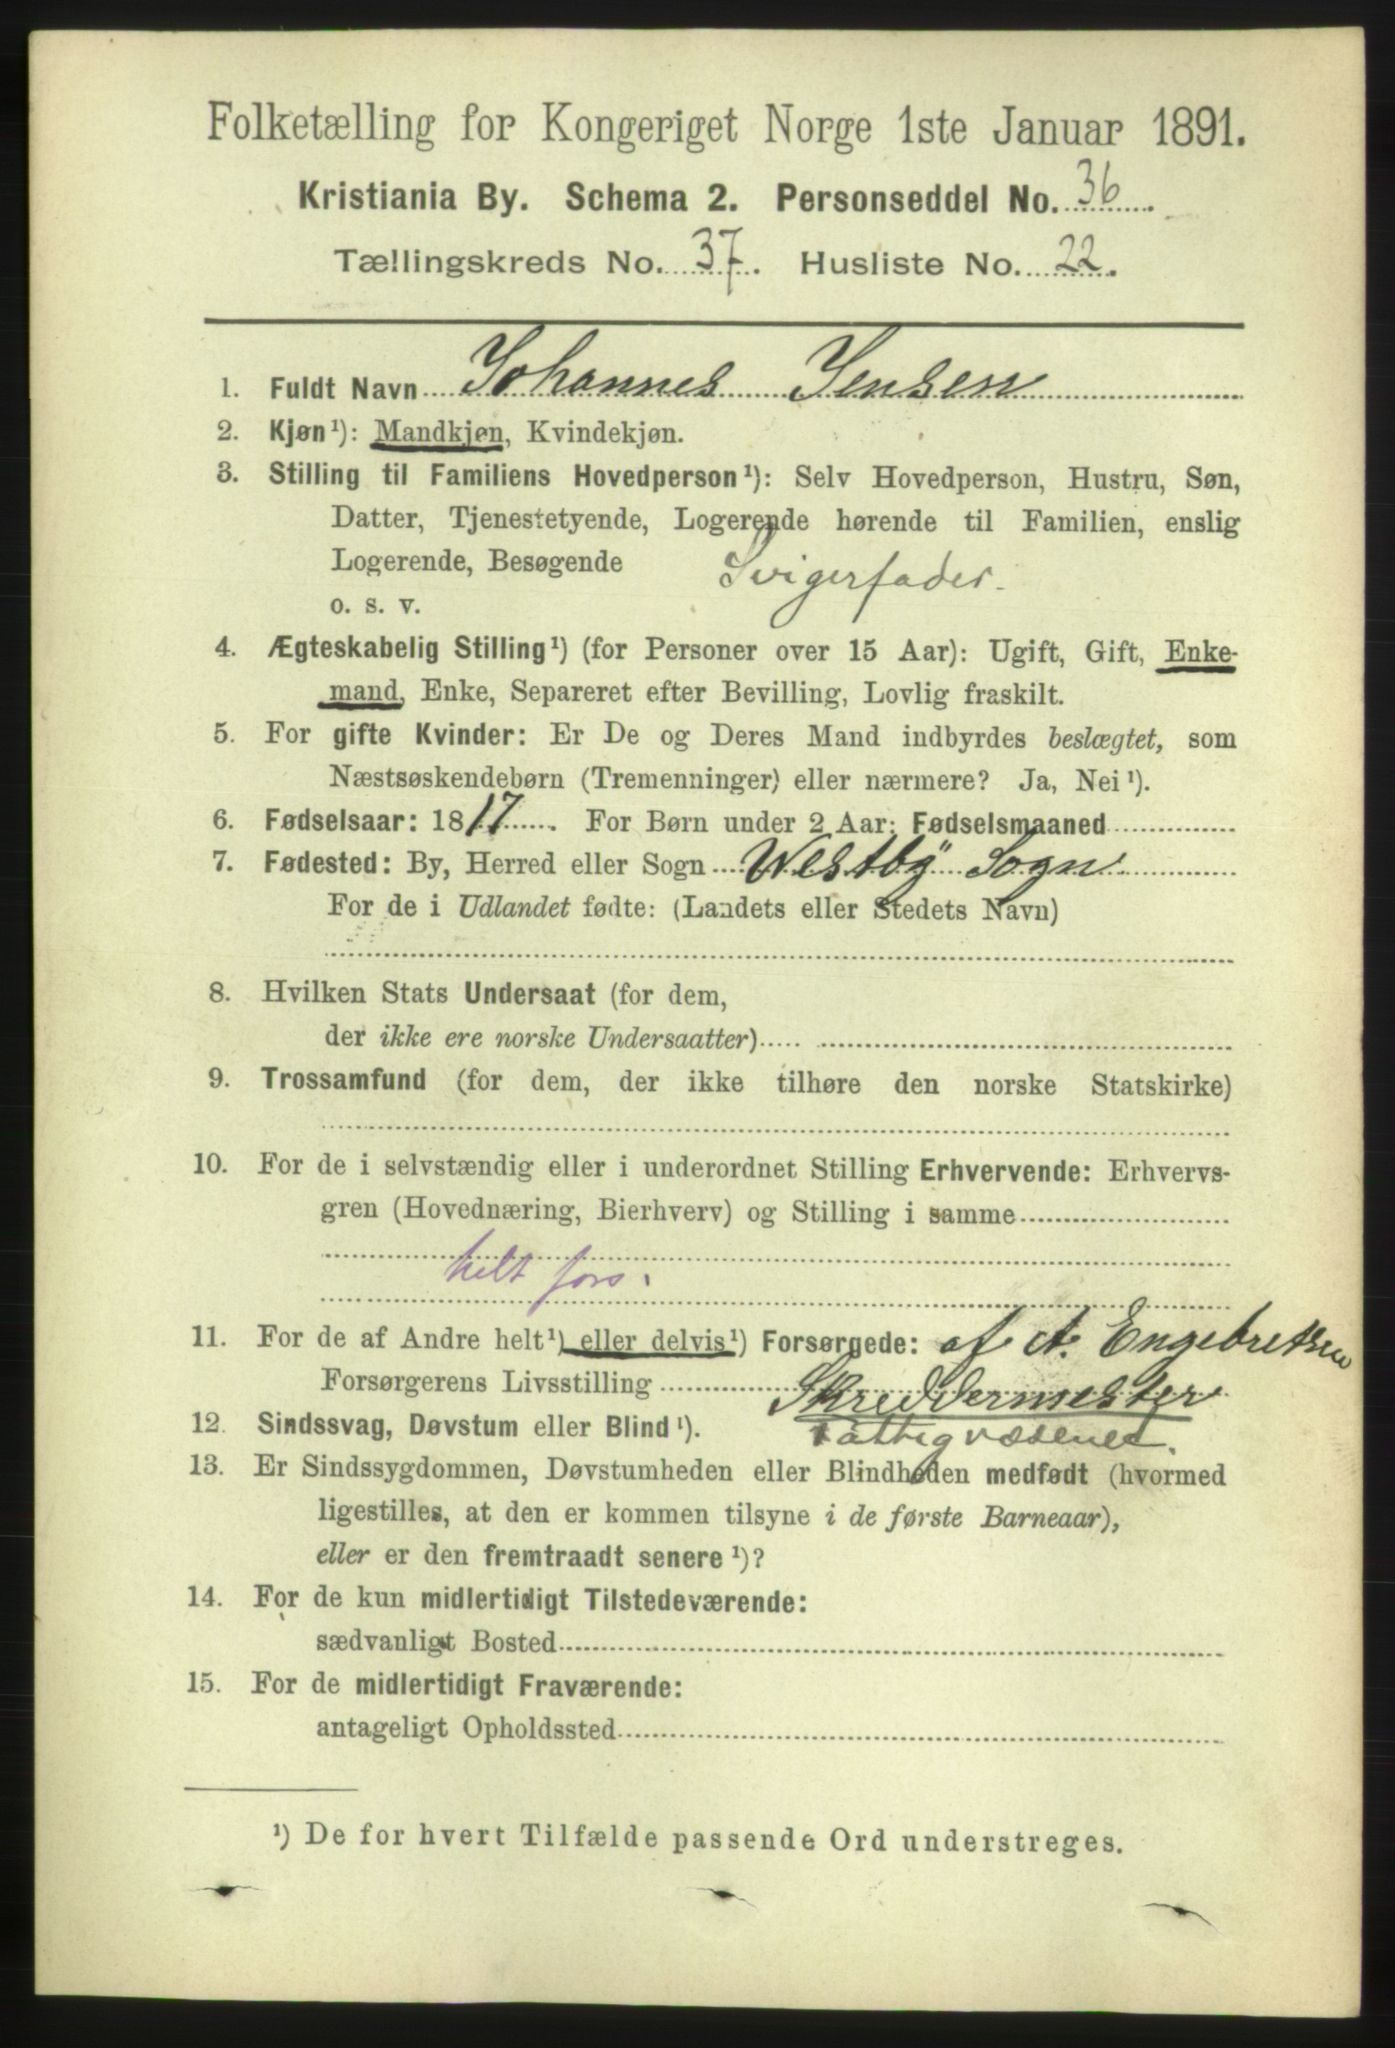 Folketælling for Kongeriget Norge 1ste Januar 1891.
Kristiania By. Schema 2. Personseddel No. 36.
Tællingskreds No. 37. Husliste No. 22.
1. Fuldt Navn Johannes Jensen
2. Kjøn¹): Mandkjøn, Kvindekjøn.
3. Stilling til Familiens Hovedperson¹): Selv Hovedperson, Hustru, Søn,
Datter, Tjenestetyende, Logerende hørende til Familien, enslig
Logerende, Besøgende Svigerfader.
o. s. v.
4. Ægteskabelig Stilling¹) (for Personer over 15 Aar): Ugift, Gift, Enke-
mand, Enke, Separeret efter Bevilling, Lovlig fraskilt.
5. For gifte Kvinder: Er De og Deres Mand indbyrdes beslægtet, som
Næstsøskendebørn (Tremenninger) eller nærmere? Ja, Nei¹).
6. Fødselsaar: 1817. For Børn under 2 Aar: Fødselsmaaned
7. Fødested: By, Herred eller Sogn Westby Sogn
For de i Udlandet fødte: (Landets eller Stedets Navn)
8. Hvilken Stats Undersaat (for dem,
der ikke ere norske Undersaatter)
9. Trossamfund (for dem, der ikke tilhøre den norske Statskirke)
10. For de i selvstændig eller i underordnet Stilling Erhvervende: Erhvervs-
gren (Hovednæring, Bierhverv) og Stilling i samme
helt fors.
11. For de af Andre helt¹) eller delvis¹) Forsørgede: af A. Engebretsen
Forsørgerens Livsstilling Skreddermester
12. Sindssvag, Døvstum eller Blind¹). Fattigvæsenet.
13. Er Sindssygdommen, Døvstumheden eller Blindheden medfødt (hvormed
ligestilles, at den er kommen tilsyne i de første Barneaar),
eller er den fremtraadt senere¹)?
14. For de kun midlertidigt Tilstedeværende:
sædvanligt Bosted
15. For de midlertidigt Fraværende:
antageligt Opholdssted
¹) De for hvert Tilfælde passende Ord understreges.